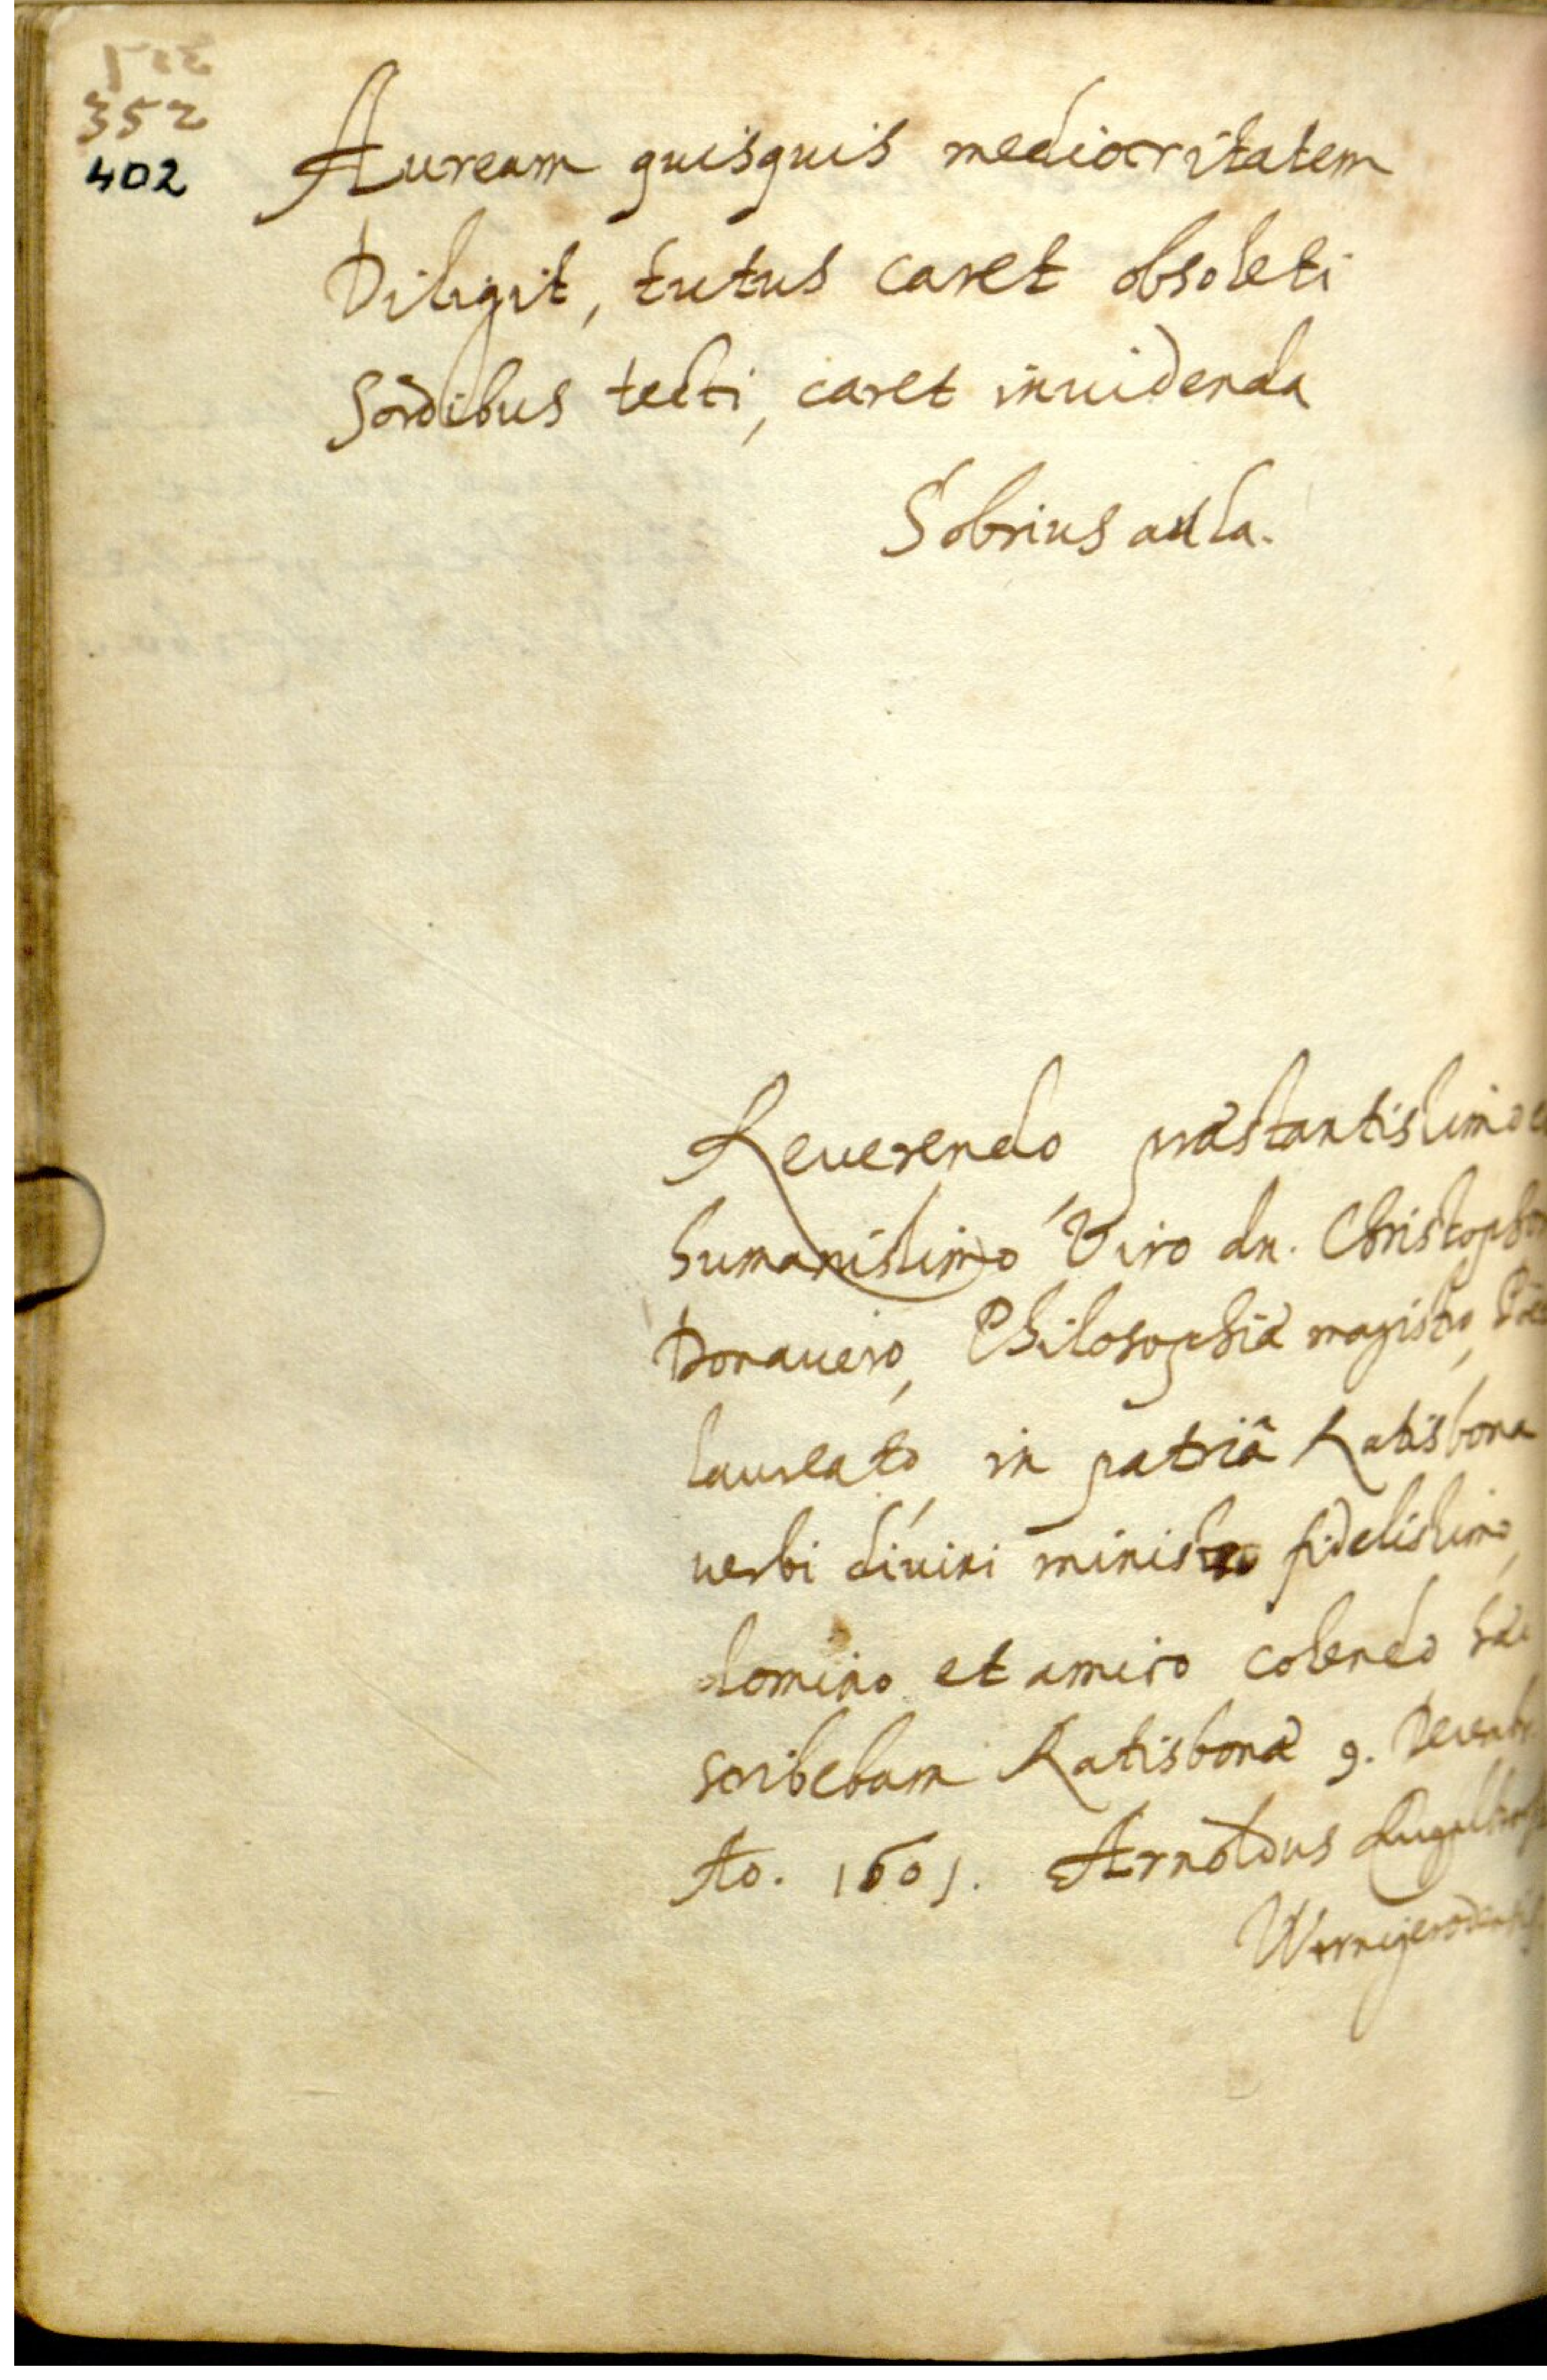 352
402
Auream quisquis mediocritatem
Diligit, tutus caret obsoleti
Sordibus tecti, caret inuidenda
Sobrius aula.
Reuerendo præstantissimo
humanissimo Viro dn. Christopho
Donauero, Philosophiæ magistro,
laureato, in patriâ Ratisbona
uerbi diuini ministro fidelissimo,
domino et amico colendo
scribebam Ratisbonæ 9. Decembr
Ao. 1601. Arnoldus
Wernigerodensis